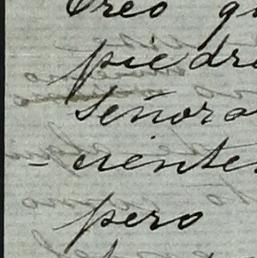 Creo qu
piedra
Señora
-cientes
pero